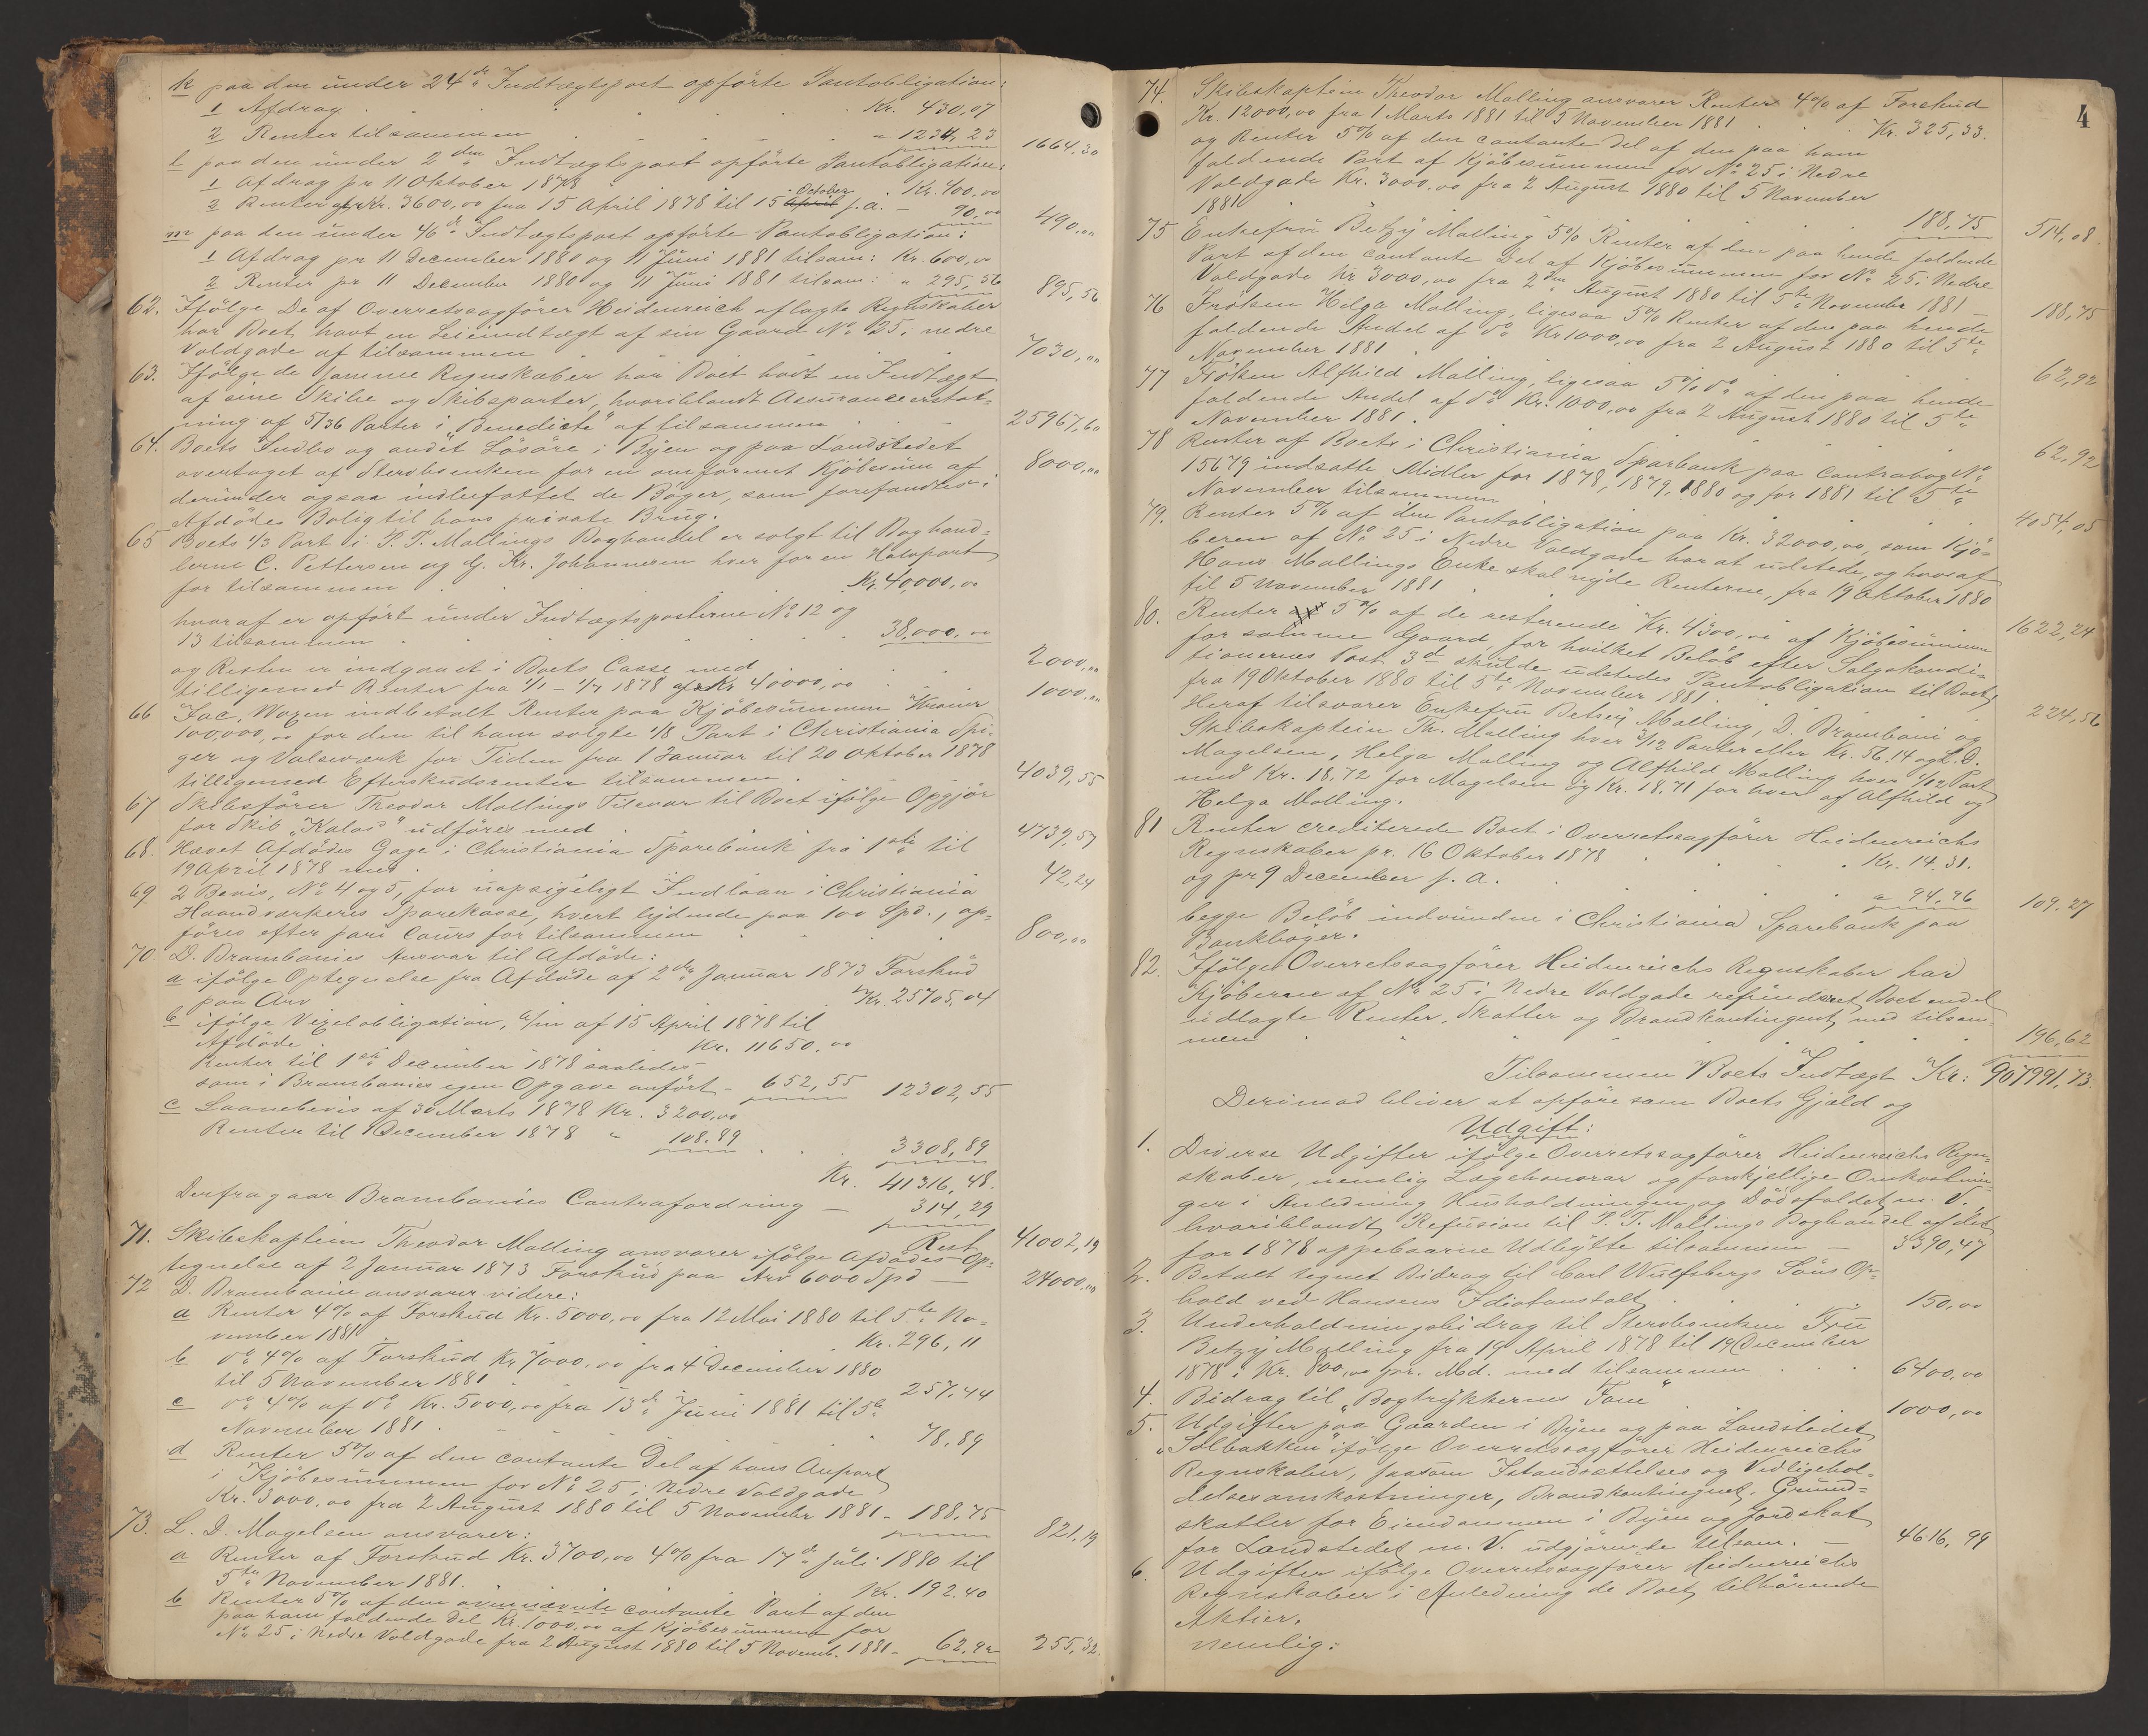 k paa den under 24de Indtægtspost opförte Pantobligation:
1 Afdrag . . . . Kr. 430,07
2 Renter tilsammen . . . . " 1234,23 1664,30
l paa den under 2den Indtægtspost opförte Pantobligation:
1 Afdrag pr 11 Oktober 1878 . . Kr. 400,00
2 Renter af Kr. 3600,00 fra 15 April 1878 til 15 April October s.a. - 90,00 490,00
m paa den under 46de Indtægtspost opförte Pantobligation:
1 Afdrag pr 11 December 1880 og 11 Juni 1881 tilsam: Kr. 600,00
2 Renter pr 11 December 1880 og 11 Juni 1881 tilsam: " 295,56 895,56
62. Ifölge De af Overretssagförer Heidenreich aflagte Regnskaber
har Boet havt en Leieindtægt af sin Gaard No 25 i nedre
Voldgade af tilsammen . . . 7030,00
63. Ifölge de samme Regnskaber har Boet havt en Indtægt
af sine Skibe og Skibsparter, hvoriblandt Assuranceerstat-
ning af 5/36 Parter i "Benedicte" af tilsammen . . 25967,60
64. Boets Indbo og andet Lösöre i Byen og paa Landstedet
overtaget af Sterboenken for en omforenet Kjöbesum af . 8000,00
derunder ogsaa indbefattet de Böger, som forefandtes i
Afdödes Bolig til hans private Brug.
65 Boets 1/3 Part i P. T. Mallings Boghandel er solgt til Boghand-
lerne C. Pettersen og G. Kr. Johannesen hver for en Halvpart
for tilsammen . . Kr. 40,000,00
hvoraf er opfört under Indtægtsposterne No 12 og
13 tilsammen . . . . 38,000,00
og Resten er indgaaet i Boets Casse med . . . 2000,00
tilligemed Renter fra 1/1 - 1/7 1878 af Kr 40000,00 . . 1000,00
66 Jac. Woxen indbetalt Renter paa Kjöbesummen Kroner
100000,00 for den til ham solgte 1/8 Part i Christiania Spi-
ger og Valseværk for Tiden fra 1 Januar til 20 Oktober 1878
tilligemed Efterskudsrenter tilsammen . . 4039,55
67 Skibsförer Theodor Mallings Tilsvar til Boet ifölge Opgjör
for Skib "Kalos" udföres med . . . 4739,57
68. Hævet Afdödes Gage i Christiania Sparebank fra 1ste til
19 April 1878 med . . . 42,24
69 2 Bevis, No 4 og 5, for uopsigeligt Indlaan i Christiania
Haandværkeres Sparekasse, hvert lydende paa 100 Spd., op-
föres efter pari Cours for tilsammen . . . 800,00
70. D. Brambanies Ansvar til Afdöde:
a ifölge Optegnelse fra Afdöde af 2den Januar 1873 Forskud
paa Arv . . Kr. 25705,04
b ifölge Vexelobligation, 6/m af 15 April 1878 til
Afdöde . . Kr. 11650,00
Renter til 1ste December 1878 saaledes
som i Brambanies egen Opgave anfört - 652,55 12302,55
c Laanebevis af 30 Marts 1878 Kr. 3200,00
Renter til 1 December 1878 " 108.89 . . 3308,89
Kr. 41316,48.
Derfra gaar Brambanies Contrafordring — 314,29
Rest 41002,19
71. Skibskaptein Theodor Malling ansvarer ifölge Afdödes Op-
tegnelse af 2 Januar 1873 Forskud paa Arv 6000 Spd — 24000,00
72 D. Brambanie ansvarer videre:
a Renter 4% af Forskud Kr. 5000,00 fra 12 Mai 1880 til 5te No-
vember 1881 Kr. 296,11
b do 4% af Forskud Kr 7000,00 fra 4 December 1880
til 5 November 1881 . . 257,44
c do 4% af do Kr. 5000,00 fra 13de Juni 1881 til 5te
November 1881 . . . 78,89
d Renter 5% af den contante Del af hans Anpart
i Kjöbesummen for No 25 i Nedre Voldgade
Kr. 3000,00 fra 2 August 1880 til 5 November 1881 - 188,75 821,19
73. L. D. Magelsen ansvarer:
a Renter af Forskud Kr. 3700,00 4% fra 17de Juli 1880 til
5te November 1881. Kr. 192.40
b Renter 5% af den ovennævnte contante Part af den
paa ham faldende Del Kr. 1000,00 af Kjöbesummen for
No 25 i Nedre Voldgade fra 2 August 1880 til 5 Novemb. 1881 - 62,92 255,32.
4
74. Skibskaptein Theodor Malling ansvarer Renter 4% af Forskud
Kr. 12000,00 fra 1 Marts 1881 til 5 November 1881 . . Kr. 325,33.
og Renter 5% af den contante Del af den paa ham
faldende Part af Kjöbesummen for No 25 i Nedre
Voldgade Kr. 3000,00 fra 2 August 1880 til 5 November
1881 . . . 188,75 514,08.
75 Enkefru Betzy Malling 5% Renter af den paa hende faldende
Part af den contante Del af Kjöbesummen for No 25 i Nedre
Voldgade Kr 3000,00 fra 2den August 1880 til 5te November 1881 — 188,75
76 Fröken Helga Malling, ligesaa 5% Renter af den paa hende
faldende Andel af do Kr 1000,00 fra 2 August 1880 til 5te
November 1881 . . . 62,92
77 Fröken Alfhild Malling, ligesaa 5% do af den paa hende
faldende Andel af do Kr. 1000,00 fra 2 August 1880 til 5te
November 1881 . . . 62,92
78 Renter af Boets i Christiania Sparbank paa Contrabog No
15679 indsatte Midler for 1878, 1879, 1880 og for 1881 til 5te
November tilsammen . . . 4054,05
79. Renter 5% af den Pantobligation paa Kr. 32000,00, som Kjö-
beren af No 25 i Nedre Voldgade har at udstede, og hvoraf
Hans Mallings Enke skal nyde Renterne, fra 19 Oktober 1880
til 5 November 1881 . . . 1622,24
80. Renter af 5% af de resterende Kr. 4300,00 af Kjöbesummen
for samme Gaard, for hvilket Belöb efter Salgskondi-
tionernes Post 3d skulde udstedes Pantobligation til Boet,
fra 19 Oktober 1880 til 5te November 1881 . . 224,56
Heraf tilsvarer Enkefru Betsey Malling, D. Brambani og
Skibskaptein Th. Malling hver 3/12 Parter eller Kr. 56.14 og L. D.
Magelsen, Helga Malling og Alfhild Malling hver 1/12 Part
med Kr. 18,72 for Magelsen og Kr. 18.71 for hver af Alfhild og
Helga Malling.
81 Renter crediterede Boet i Overretssagförer Heidenreichs
Regnskaber pr. 16 Oktober 1878 . . Kr. 14.31.
og pr 9 December s. a. . . . " 94,96 109.27
begge Belöb indvundne i Christiania Sparebank paa
Bankböger.
82. Ifölge Overretssagförer Heidenreichs Regnskaber har
Kjöberne af No 25 i Nedre Voldgade refunderet Boet endel
udlagte Renter, Skatter og Brandkontingent med tilsam-
men . . . 196,62
Tilsammen Boets Indtægt Kr: 907991,73.
Derimod bliver at opföre som Boets Gjæld og
Udgift:
1. Diverse Udgifter ifölge Overretssagförer Heidenreichs Regn-
skaber, nemlig Lægehonorar og forskjellige Omkostnin-
ger i Anledning Husholdningen og Dödsfaldet m. V.,
hvoriblandt Refusion til P. T. Mallings Boghandel af det
for 1878 oppebaarne Udbytte tilsammen — 3390,47
2. Betalt tegnet Bidrag til Carl Wulfsbergs Söns Op-
hold ved Hansens Idiotanstalt . . . 150,00
3. Underholdningsbidrag til Sterboenken Fru
Betzy Malling fra 19 April 1878 til 19 December
1878 i Kr. 800,00 pr. Md. med tilsammen . . 6400,00
4. Bidrag til "Bogtrykkernes Fane" . . 1000,00
5. Udgifter paa Gaarden i Byen og paa Landstedet
"Solbakken" ifölge Overretssagförer Heidenreichs
Regnskaber, saasom Istandsættelses og Vedligehol-
delsesomkostninger, Brandkontingent, Grund-
skatter for Eiendommen i Byen og Jordskat
for Landstedet m. V. udgjörende tilsam. — 4616,99
6. Udgifter ifölge Overretssagförer Heidenreichs
Regnskaber i Anledning de Boet tilhörende
Aktier.
nemlig: